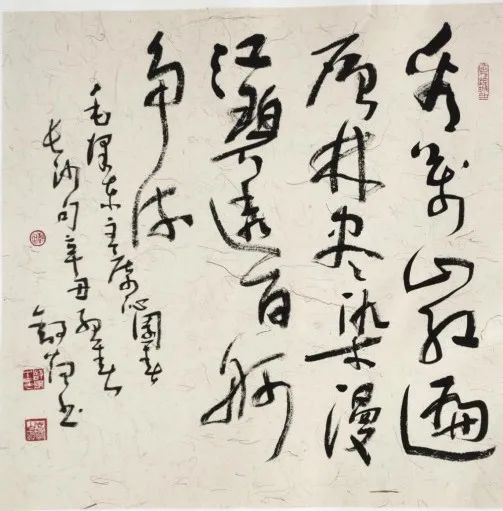 看萬山红遍
层林尽染漫
江碧透百舸
争流
毛泽东主席沁园春
长沙句辛丑春
书